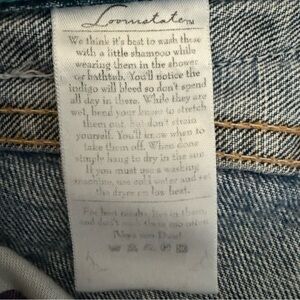 Loomstate™
We think it's best to wash these
with a little shampoo while
wearing them in the shower
or bathtub. You'll notice the
indigo will bleed so don't spend
all day in there. While they are
wet, bend your knees to stretch
them out, but don't strain
yourself. You'll know when to
take them off. When done
simply hang to dry in the sun
If you must use a washing
machine, use cold water and set
the dryer on low heat.
For best results, live in them,
and don't wash them too often.